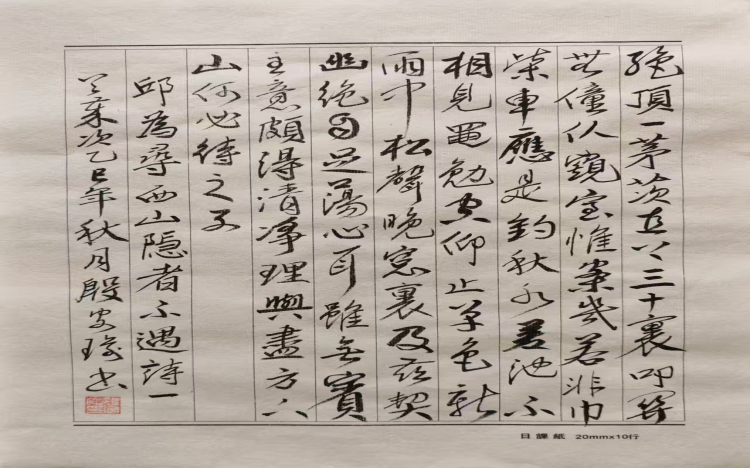 絶頂一茅茨直上三十裏叩關
無僮仆窺室惟案幾若非巾
柴車應是釣秋水差池不
相見黽勉空仰止草色新
雨中松聲晚窓裏及茲契
幽絶自足蕩心耳雖無賓
主意頗得清淨理興盡方下
山何必待之子
邱為尋西山隱者不遇詩一
首歲次乙巳年秋月殷安书
日課紙 20mmx10行